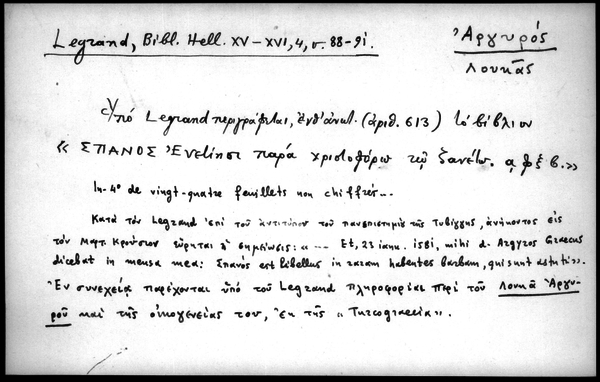 Legrand, Bibl. Hell. XV–XVI, 4, σ. 88-91.
Ἀργυρός
Λουκᾶς
Ὑπό Legrand περιγράφεται, ἔνθ' ἀνωτ. (ἀριθ. 613) τό βίβλιον
« ΣΠΑΝΟΣ Ἐνετίῃσι παρά χριστοφόρῳ τῷ ζανέτῳ. α φ ξ β.»
In-4° de vingt-quatre feuillets non chiffrés...
Κατά τόν Legrand ἐπί τοῦ ἀντιτύπου τοῦ πανεπιστημίου τῆς Τυβίγγης, ἀνήκοντος εἰς
τόν Μαρτ. Κρούσιον εὕρηται ἡ σημείωσις: «... Et, 23 ianu. 1581, mihi d. Argyros Graecus
dicebat in mensa mea: Σπανός est libellus in raram habentes barbam, qui sunt astuti».
Ἐν συνεχείᾳ παρέχονται ὑπό τοῦ Legrand πληροφορίαι περί τοῦ Λουκᾶ Ἀργυ-
ροῦ καί τῆς οἰκογενείας του, ἐκ τῆς «Turcograecia».